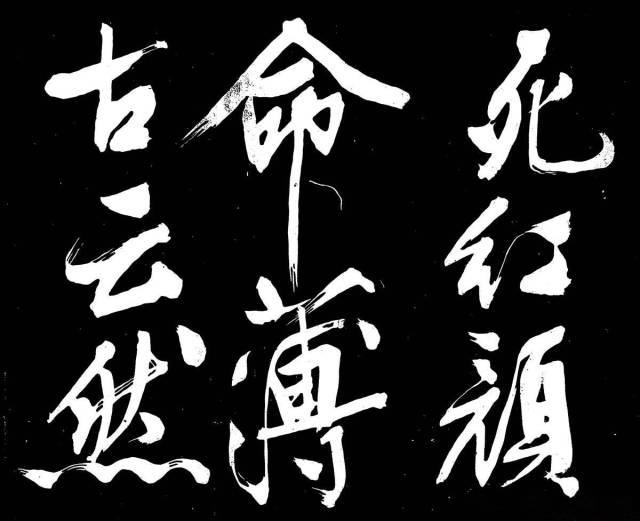 死红颜
命薄
古云然